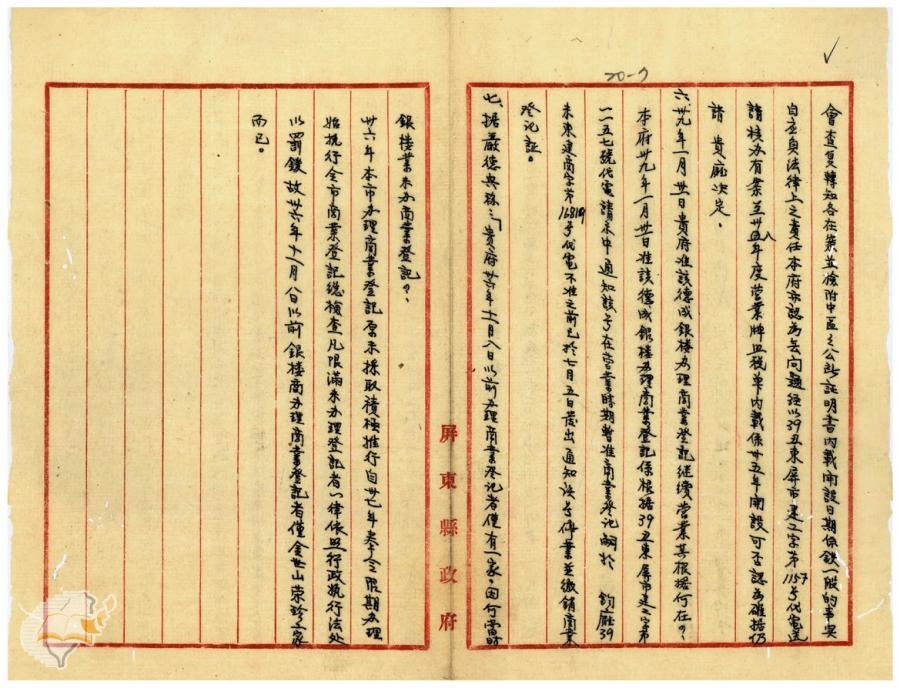 20-7
會查复轉知各在案並檢附中區區公所証明書內載開設日期係鉄一般的事實
自应負法律上之責任本府亦認為無问題經以39丑東屏市建工字第1157号代電送
請核办有案至卅五年度营業牌照税单內載係卅五年開設可否認為確据仍
請貴廳决定。
六卅九年一月卅日貴府准該德成銀楼办理商業登記继續营業其根据何在？
本府卅九年一月卅日准該德成銀楼办理商業登記係根据39丑東屏市建工字第
一一五七號代電請示中通知該号在营業時期暫准商業登记嗣於 鈞廳39
未東建商字第16819号代電不准之前已於七月五日發出通知决令停業並繳銷商業
登记証。
七、据嚴德英稱：「貴府卅六年十一月八日以前办理商業登记者僅有一家，因何當時
屏東縣政府
銀楼業未办商業登記？」
卅六年本市办理商業登記原未採取積極推行自卅七年奉令限期办理
始执行全市商業登記總檢查凡限滿未办理登記者一律依照行政执行法处
以罰鍰故卅六年十一月八日以前銀楼商办理商業登記者僅金山荣珍一家
而已。